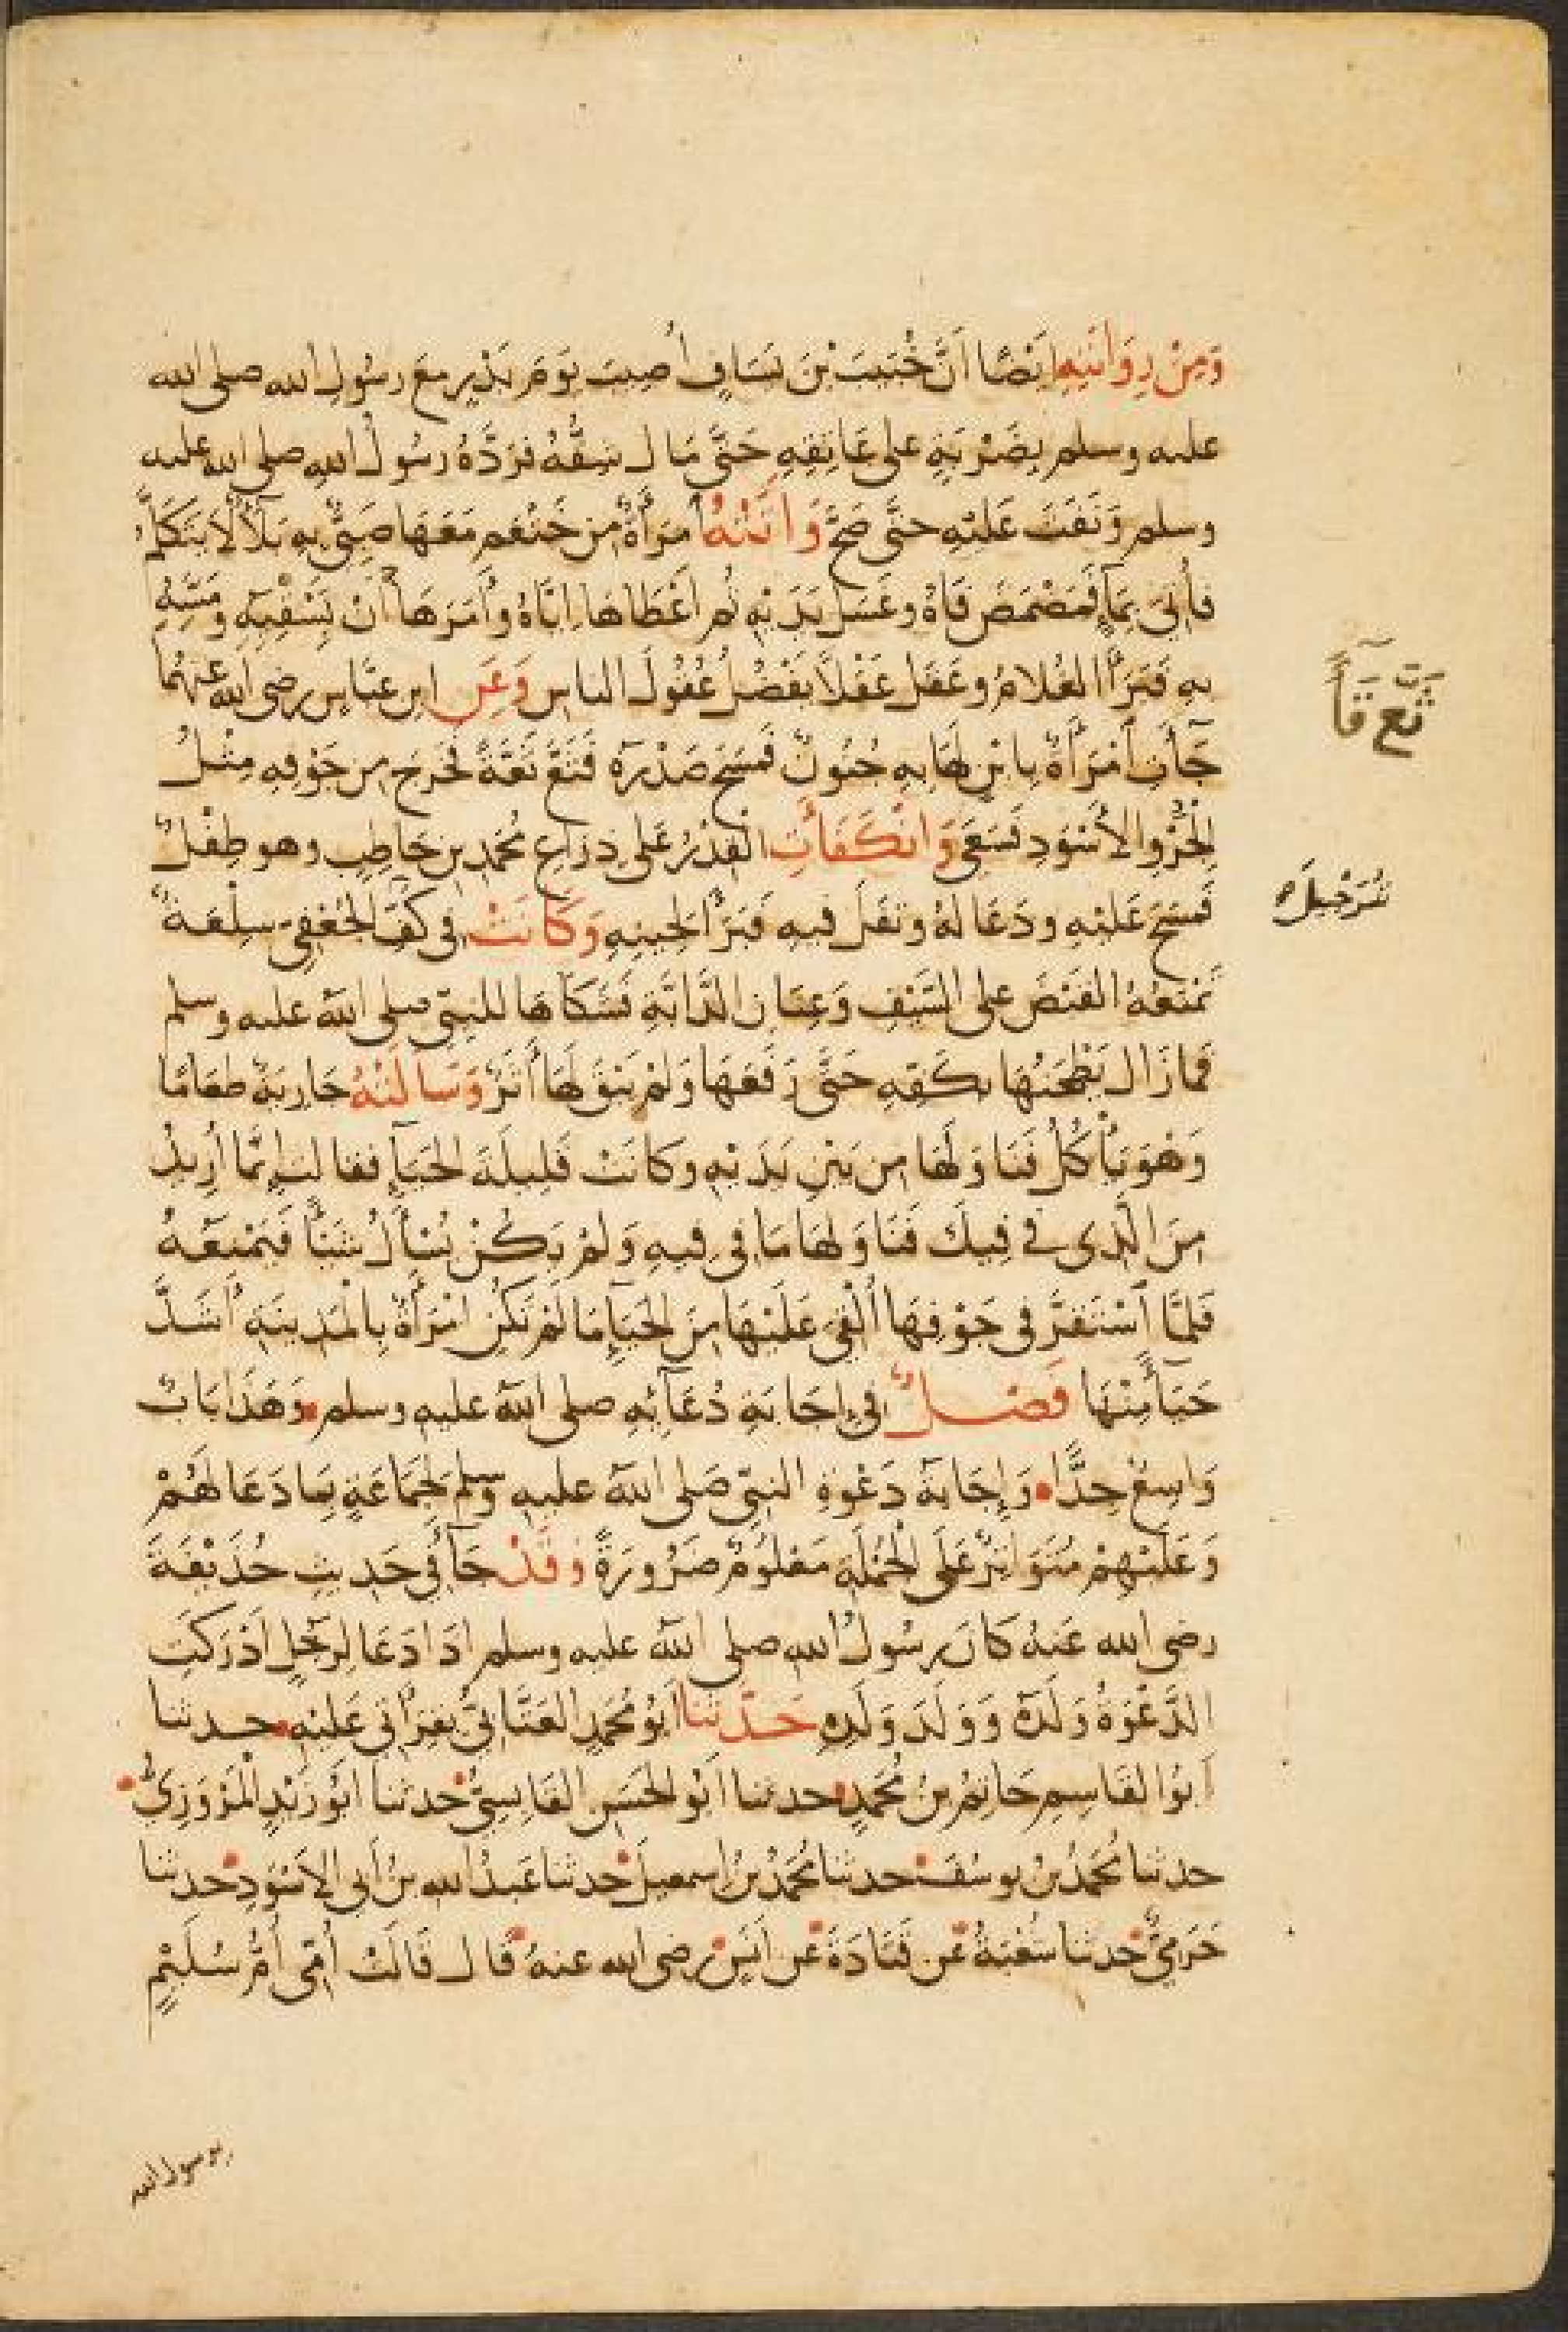 وَمِنْ رِوَايَتِهِ اَيْضًا اَنَّ خُبَيْبَ بْنَ يَسَافٍ اُصِيبَ يَوْمَ بَدْرٍ مَعَ رسُولِ الله صلى الله
عليه وسلم بِضَرْبَةٍ على عَاتِقِهِ حَتَّى مَالَ شِقُّهُ فَرَدَّهُ رسُولُ اللهِ صلى الله عليه
وسلم وَنَفَثَ عَلَيْهِ حتى صَحَّ وَاَتَتْهُ امْرَأَةٌ مِن خَثْعَم مَعَهَا صَبِيٌّ بِهِ بَلَآءٌ لَا يَتَكَلَّمُ
فأُتِىَ بِمَآءٍ فَمَضْمَضَ فَاهُ وغَسَلَ يَدَيْهِ ثُم اَعْطَاهَا اِيَّاهُ وأَمَرَهَا أَنْ تَسْقِيَهُ وَمَسِّهِ
بِهِ فَبَرَأَ الغُلامُ وعَقَلَ عَقْلًا يَفْضُلُ عُقُولَ الناسِ وَعَنِ ابن عبَّاسٍ رضى الله عنهُما
جَآءَتِ امْرَأَةٌ بِابْنٍ لَهَا بِهِ جُنُونٌ فَمَسَحَ صَدْرَهُ فَثَعَّ ثَعَّةً فَخَرَجَ مِن جَوْفِهِ مِثْلُ
الجُرْوِ الاَسْوَدِ فَسَعَى وَانْكَفَأَتِ القِدْرُ عَلى ذِرَاعِ مُحَمدِ بنِ حَاطِبٍ وهو طِفْلٌ
فَمَسَحَ عَلَيْهِ ودَعَا لَهُ وتَفَلَ فيهِ فَبَرَأَ لِحِينِهِ وَكَانَتْ فى كَفِّ الجُعْفِىِّ سِلْعَةٌ
تَمْنَعُهُ القَبْضَ على السَّيْفِ وَعِنَانِ الدَّابَّةِ فَشَكَاهَا للنبىِّ صلى اللهُ عليه وسلم
فَمَا زَالَ يَطْحَنُهَا بكَفِّهِ حَتَّى رَفَعَهَا وَلَمْ يَبْقَ لَهَا أَثَرٌ وَسَأَلَتْهُ جَارِيَةٌ طَعَامًا
وَهُوَ يَأْكُلُ فَنَاوَلَهَا مِن بَيْنِ يَدَيْهِ وكَانَتْ قَلِيلَةَ الحَيَآءِ فقالَتْ إِنَّمَا أُرِيدُ
مِنَ الَّذِى فى فِيكَ فَنَاوَلَهَا مَا فى فِيهِ وَلَمْ يَكُنْ يُسْأَلُ شَيْئًا فَيَمْنَعَهُ
فَلَمَّا اسْتَقَرَّ فى جَوْفِهَا أُلْقِىَ عَلَيْهَا مِنَ الحَيَآءِ مَا لَمْ تَكُنِ امْرَأَةٌ بِالْمَدِينَةِ أَشَدَّ
حَيَآءً مِنْهَا فَصْلٌ فى إِجَابَةِ دُعَآئِهِ صلى اللهُ عليهِ وسلم وَهَذَا بَابٌ
وَاسِعٌ جِدًّا وَإِجَابَةُ دَعْوَةِ النبىّ صَلى اللهُ عليهِ وسلم لِجَمَاعَةٍ بِمَا دَعَا لَهُمْ
وَعَلَيْهِمْ مُتَوَاتِرٌ عَلَى الجُمْلَةِ مَعْلُومٌ ضَرُورَةً وقَدْ جَآءَ فى حَدِيثِ حُذَيْفَةَ
رضى الله عَنهُ كَانَ رسُولُ اللهِ صلى اللهُ عليه وسلم اذَا دَعَا لِرَجُلٍ اَدْرَكَتِ
الدَّعْوَةُ وَلَدَهُ وَوَلَدَ وَلَدِهِ حَدَّثَنَا اَبُو مُحَمدٍ العَتَّابِىُّ بقِرَاْتى عَلَيْهِ حدثنا
اَبُوا القَاسِمِ حَاتِمُ بنُ مُحَمدٍ حدثنا اَبُو الحَسَنِ القَابِسِىُّ حدثنا اَبُو زَيْدٍ الْمَرْوَزِىُّ
حدثنا مُحَمَّدُ بنُ يوسُفَ حدثنا مُحَمَّدُ بنُ اسمعيلَ حدثنا عَبدُ اللهِ بنُ أبى الاَسْوَدِ حدثنا
حَرَمِىٌّ حدثنا شُعْبَةُ عن قَتَادَةَ عن اَنَسٍ رضى الله عنهُ قالَ قَالَتْ أُمِّى أُمُّ سُلَيْمٍ
ثَعَّ قَآءَ
شُرَحْبِيلَ
يرسول الله